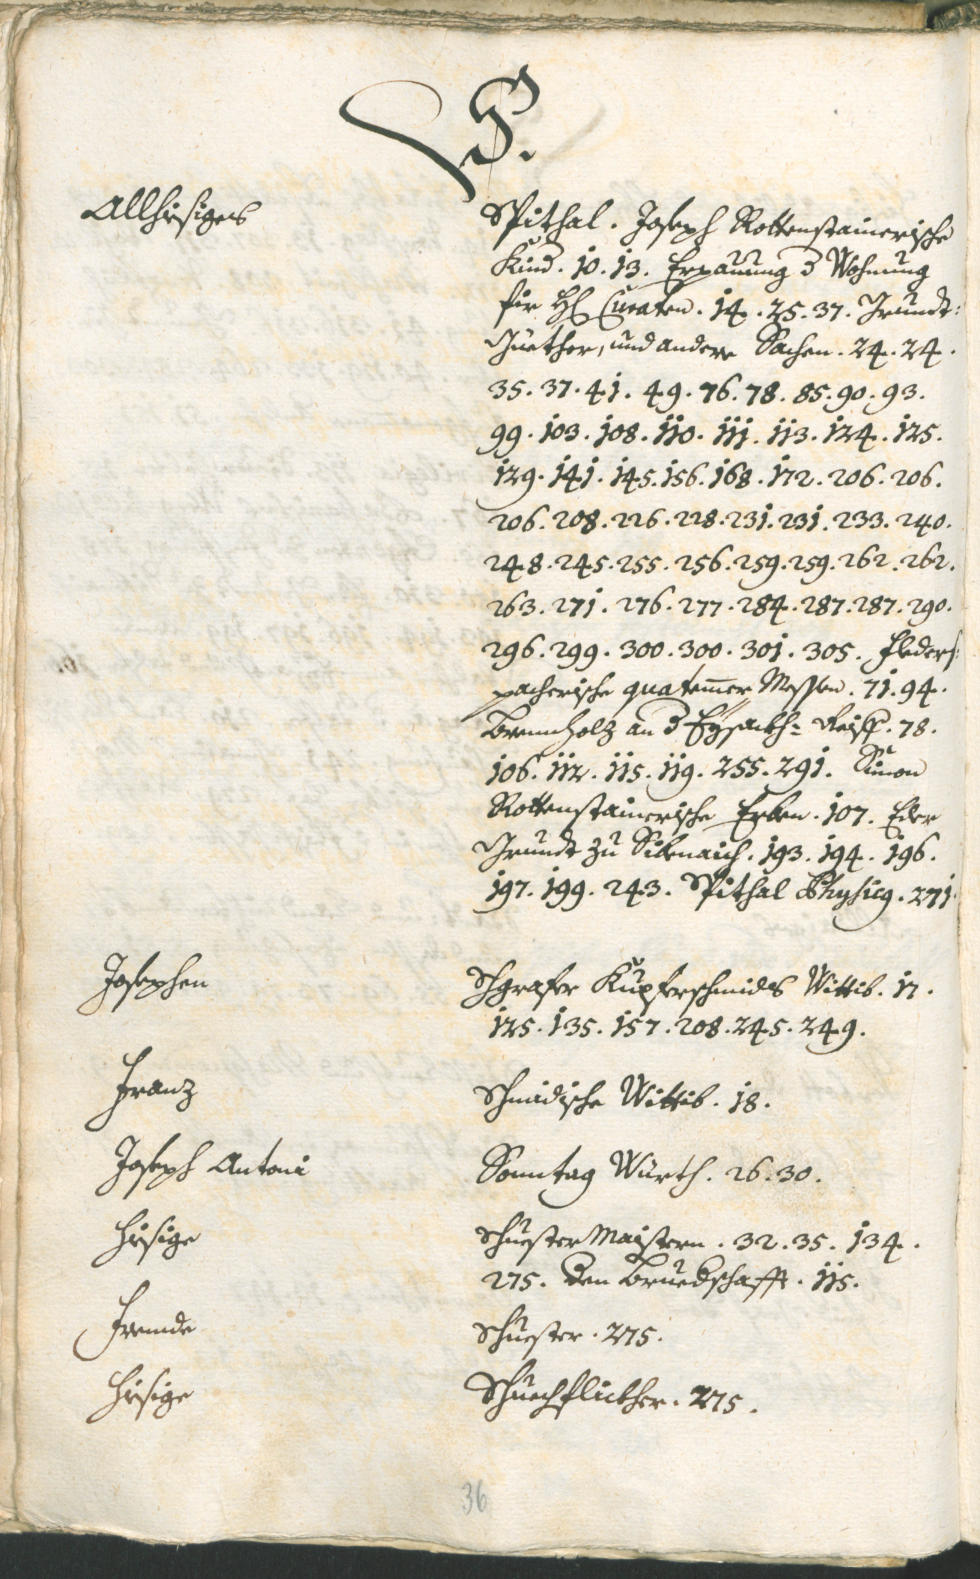 S.
Allhiesiges Spithal. Joseph Rottenstainerische
Kind. 10. 13. Erpauung d Wohnung
für H: Curaten. 14. 25. 37. Grundt:
Guether, und andere Sachen. 24. 24.
35. 37. 41. 49. 76. 78. 85. 90. 93.
99. 103. 108. 110. 111. 113. 124. 125.
129. 141. 145. 156. 168. 172. 206. 206.
206. 208. 226. 228. 231. 231. 233. 240.
248. 245. 255. 256. 259. 259. 262. 262.
263. 271. 276. 277. 284. 287. 287. 290.
296. 299. 300. 300. 301. 305. Feders:
pacherische quatemer Messen. 71. 94.
Brennholz an d Eysackh= Reiff. 78.
106. 112. 115. 119. 255. 291. Simon
Rottenstainerische Erben. 107. Eder
Grundt zu Sibenaich. 193. 194. 196.
197. 199. 243. Spithal Physicg. 271.
Josephen Schgrafer Kupferschmids Wittib. 17.
125. 135. 157. 208. 245. 249.
Franz Schmidische Wittib. 18.
Joseph Antoni Sonntag Würth. 26. 30.
Hiesige Schuester Maistern. 32. 35. 134.
275. den Bruedschafft. 115.
Fremde Schuester. 275.
Hiesige Schuechflickher. 275.
36